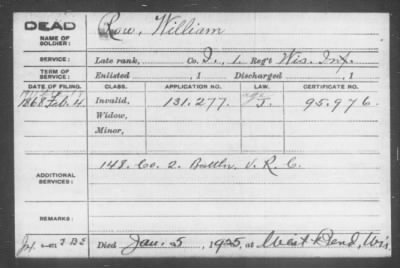 DEAD
NAME OF SOLDIER: Row, William
SERVICE: Late rank, Co. I, 1 Reg't Wis. Inf.
TERM OF SERVICE: Enlisted , 1 Discharged , 1
DATE OF FILING. CLASS. APPLICATION NO. LAW. CERTIFICATE NO.
1868 Feb. 4. Invalid, 131.277. J. 95.976.
Widow,
Minor,
ADDITIONAL SERVICES: 148. Co. 2. Battln. V. R. C.
REMARKS:
Died Jan. 5, 1925, at West Bend, Wis